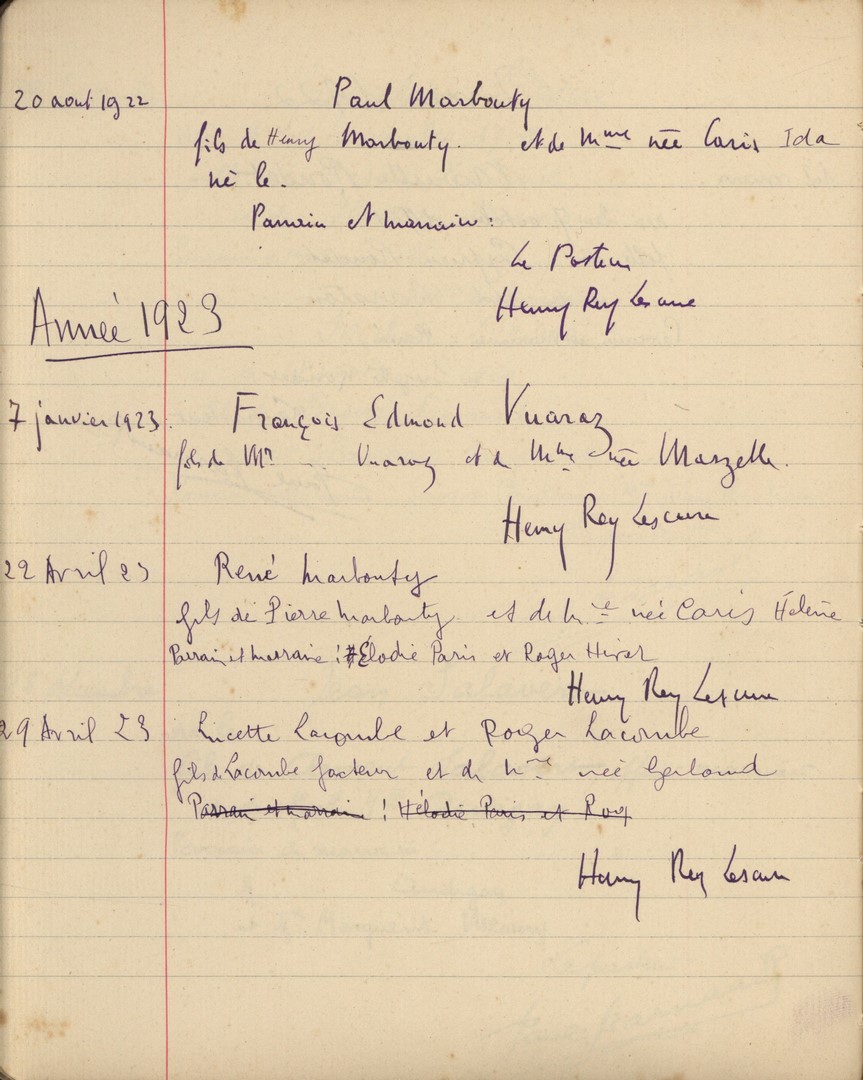 20 aout 1922 Paul Marbouty
fils de Henry Marbouty. et de Mme née Caris Ida
né le.
Parrain et marraine :
Le Pasteur
Henry Rey Lescure
Année 1923
7 janvier 1923. François Edmond Vuaraz
fils de Mr ... Vuaroz et de Mme née Marzelle.
Henry Rey Lescure
22 Avril 23 René Marbouty
fils de Pierre Marbouty et de Mme née Caris Hélène
Parrain et marraine : Élodie Paris et Roger Hivert
Henry Rey Lescure
29 Avril 23 Lucette Lacombe et Roger Lacombe
fils de Lacombe facteur et de Mme née Gerbaud
Parrain et marraine ! Hélodie Paris et Rog
Henry Rey Lescure